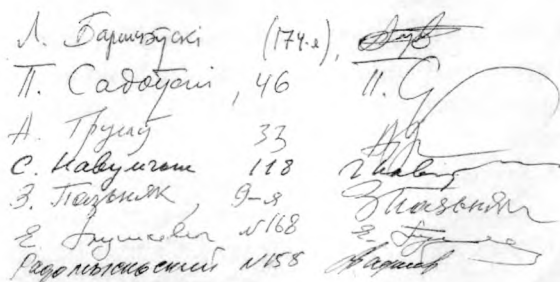 Л. Баршчэўскі (174-я),
П. Садоўскі, 46 П. С
А. Трусаў 33
С. Навумчык 118
З. Пазьняк, 9-я ЗПазьняк
№168
Радомысльский №158